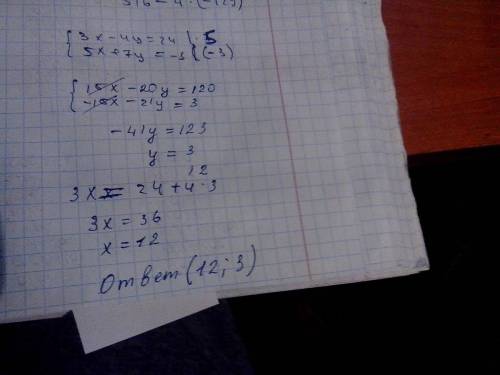 516 - 4 · (-129)
{ 3x - 4y = 24 | · 5
{ 5x + 7y = -1 | (-3)
{ 15x - 20y = 120
{ -15x - 21y = 3
-41y = 123
y = 3
12
3x = 24 + 4 · 3
3x = 36
x = 12
Ответ (12; 3)